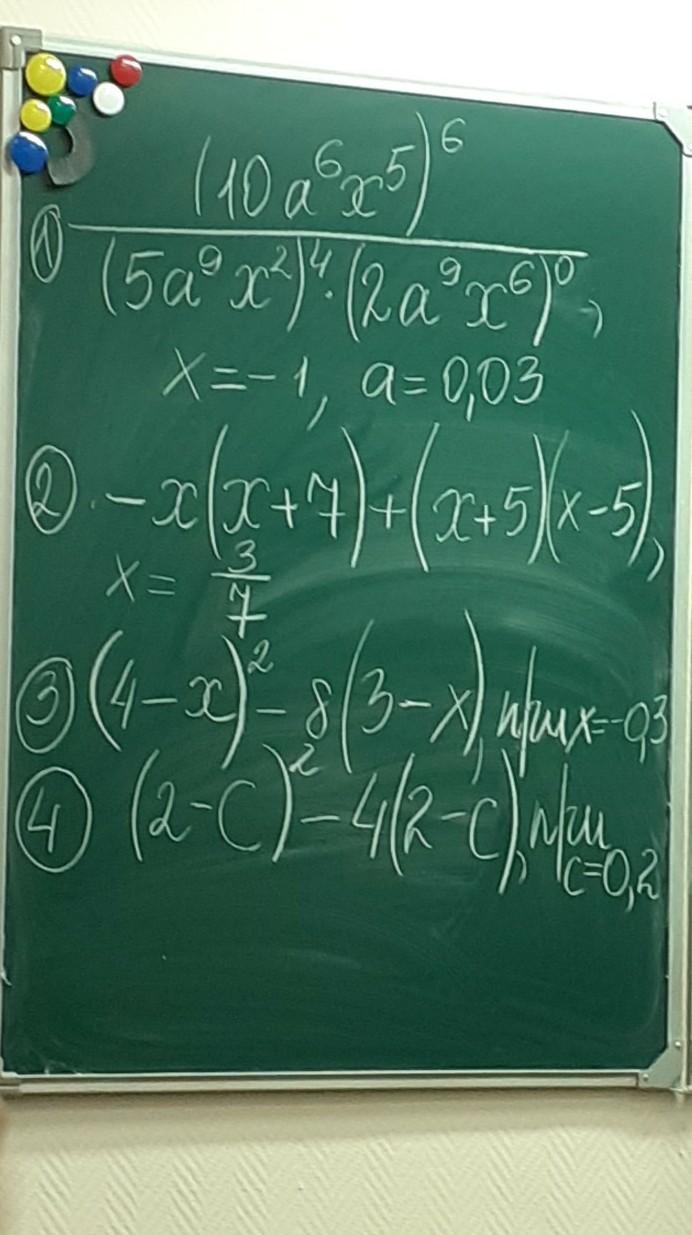 ① (10a⁶x⁵)⁶
(5a⁹x²)⁴·(2a⁹x⁶)⁰,
x=-1, a=0,03
② -x(x+7)+(x+5)(x-5),
x= 3/7
③ (4-x)²-8(3-x), при x=-0,3
④ (2-c)²-4(2-c), при
c=0,2